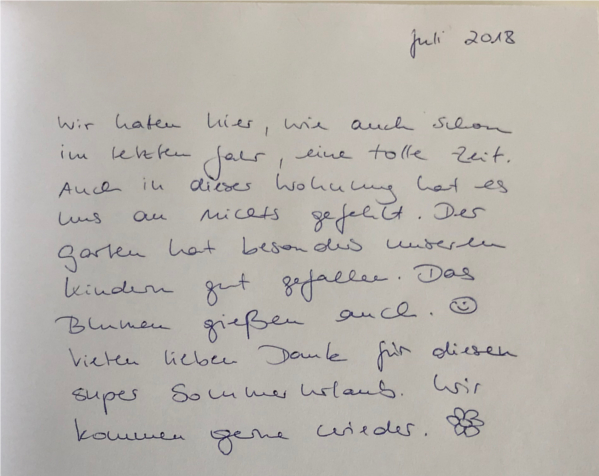 Juli 2018
Wir hatten hier, wie auch schon
im letzten Jahr, eine tolle Zeit.
Auch in dieser Wohnung hat es
uns an nichts gefehlt. Der
Garten hat besonders unseren
Kindern gut gefallen. Das
Blumen gießen auch. ☺
Vielen lieben Dank für diesen
super Sommerurlaub. Wir
kommen gerne wieder.